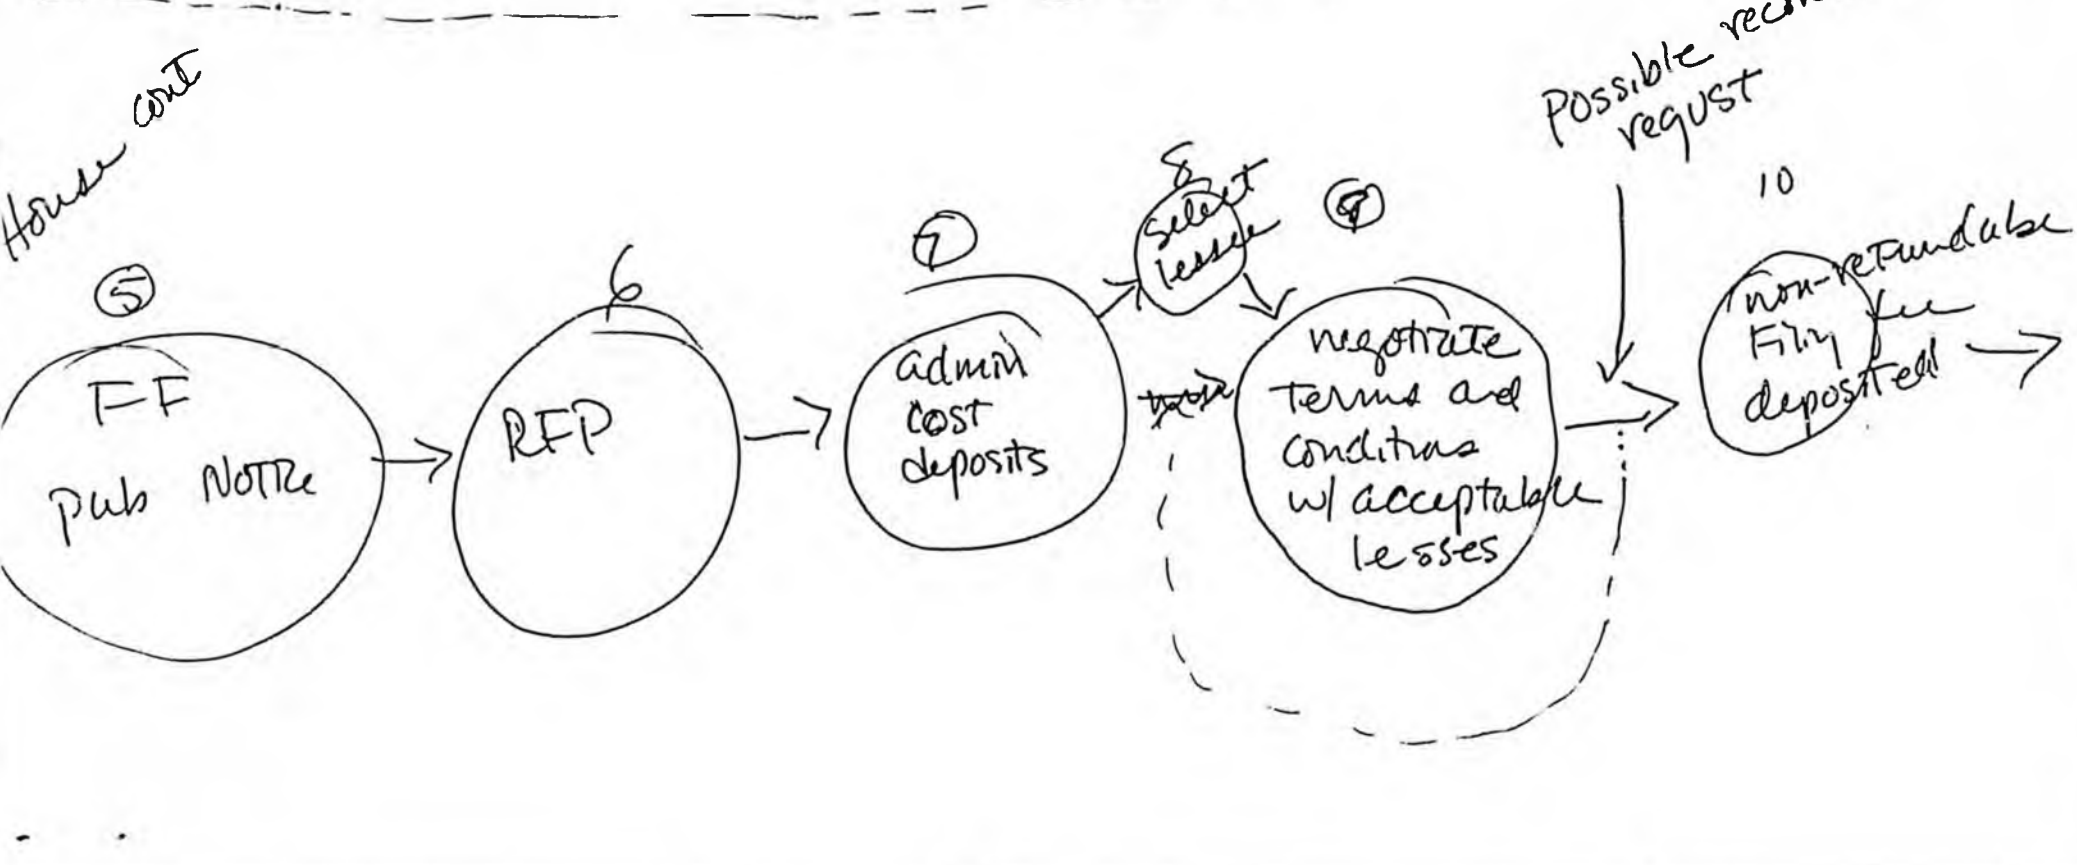 House cont
Possible
requst
5
FF
pub Notice
6
RFP
7
admin
cost
deposits
8
select
lessee
9
negotiate
terms and
conditions
w/ acceptable
lesses
10
non-refundabe
fee
deposited